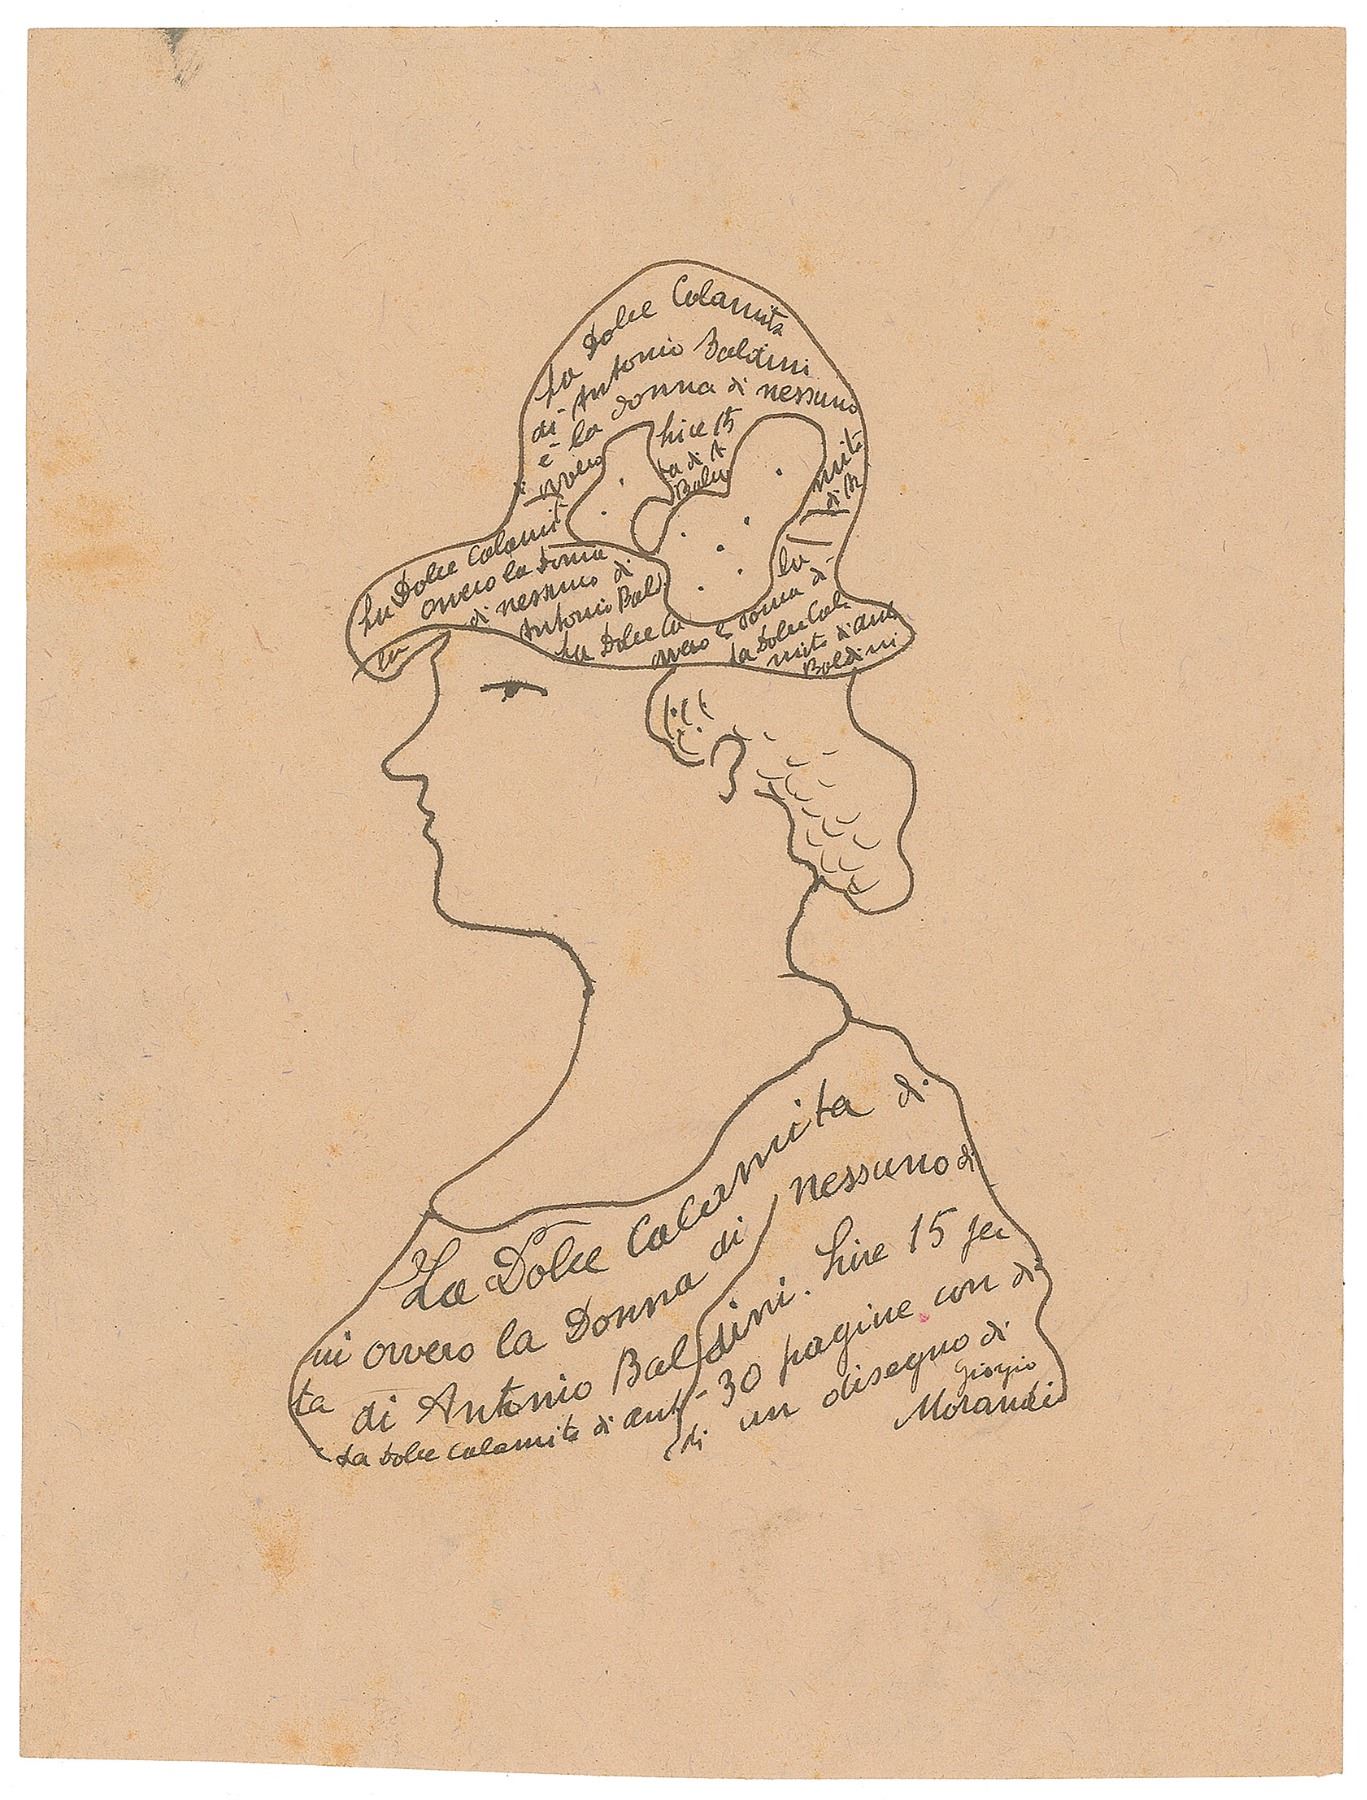 La Dolce Calamita
di Antonio Baldini
è la donna di nessuno
ovvero
Lire 15
ta di A
Baldi
mita
di A
La Dolce Calamit
ovvero la Donna
di nessuno di
Antonio Bald
La Dolce Ca
la
la
ovvero la donna di
La Dolce Cala
mita di Ant
Baldini
La Dolce Calamita di
ni ovvero la Donna di nessuno di
ta di Antonio Baldini. Lire 15 per
La Dolce Calamita di Ant 30 pagine con di
di un disegno di
Giorgio
Morandi